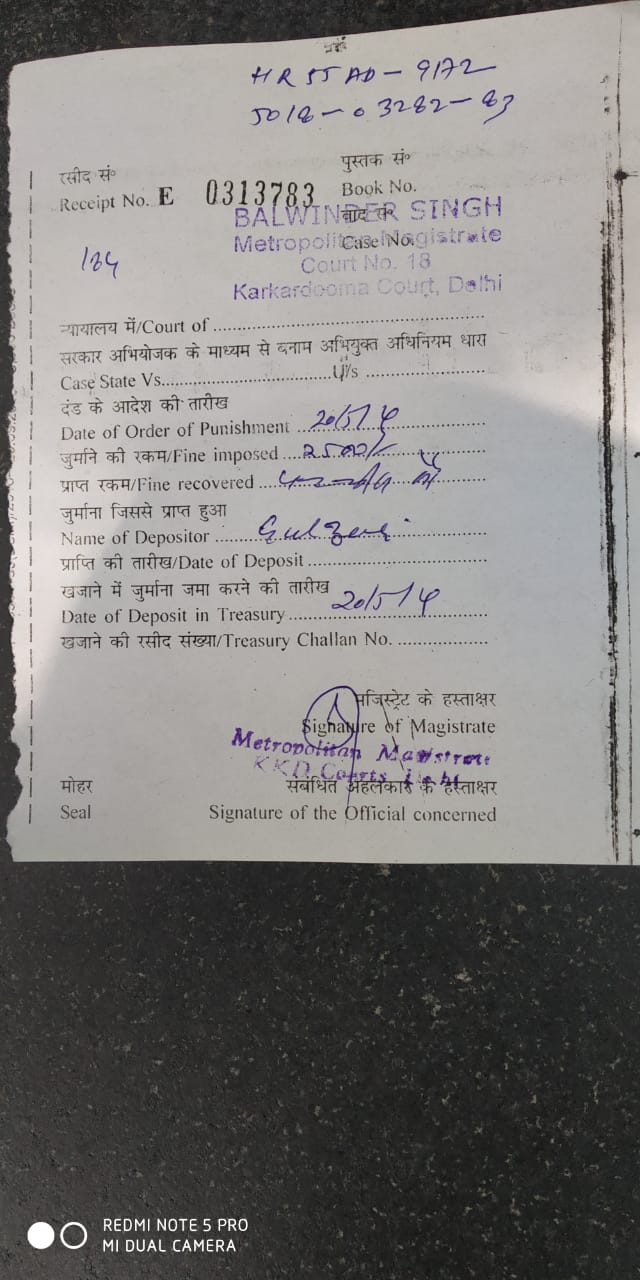 HR55AD-9172
5018-03282-83
रसीद सं० पुस्तक सं०
Receipt No. E 0313783 Book No.
BALWINDER SINGH वाद सं०
Metropolitan Magistrate Case No.
184 Court No. 18
Karkardooma Court, Delhi
न्यायालय में/Court of
सरकार अभियोजक के माध्यम से बनाम अभियुक्त अधिनियम धारा
Case State Vs. U/s
दंड के आदेश की तारीख
Date of Order of Punishment 20/5/19
जुर्माने की रकम/Fine imposed 2500/-
प्राप्त रकम/Fine recovered
जुर्माना जिससे प्राप्त हुआ
Name of Depositor
प्राप्ति की तारीख/Date of Deposit
खजाने में जुर्माना जमा करने की तारीख
Date of Deposit in Treasury 20/5/19
खजाने की रसीद संख्या/Treasury Challan No.
मजिस्ट्रेट के हस्ताक्षर
Signature of Magistrate
Metropolitan Magistrate
KKD Courts Delhi
मोहर संबंधित अहलकार के हस्ताक्षर
Seal Signature of the Official concerned
REDMI NOTE 5 PRO
MI DUAL CAMERA